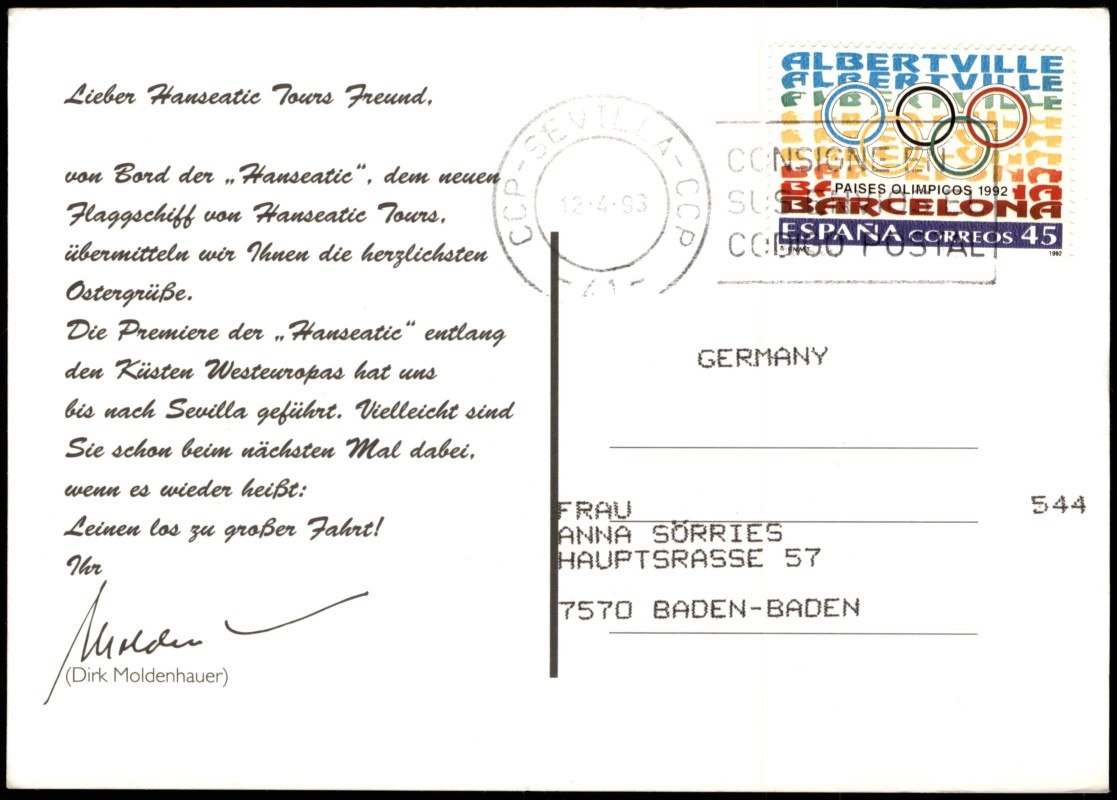 Lieber Hanseatic Tours Freund,
von Bord der „Hanseatic“, dem neuen
Flaggschiff von Hanseatic Tours,
übermitteln wir Ihnen die herzlichsten
Ostergrüße.
Die Premiere der „Hanseatic“ entlang
den Küsten Westeuropas hat uns
bis nach Sevilla geführt. Vielleicht sind
Sie schon beim nächsten Mal dabei,
wenn es wieder heißt:
Leinen los zu großer Fahrt!
Ihr
Molden
(Dirk Moldenhauer)
CCP-SEVILLA-CCP
12-4-93
CONSIGNE EN
CODIGO POSTAL
ALBERTVILLE
ALBERTVILLE
ALBERTVILLE
PAISES OLIMPICOS 1992
BARCELONA
ESPAÑA CORREOS 45
1992
GERMANY
FRAU 544
ANNA SÖRRIES
HAUPTSRASSE 57
7570 BADEN-BADEN